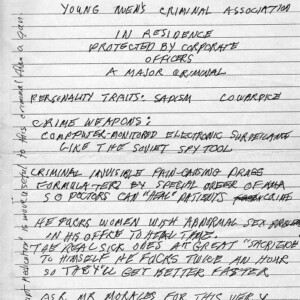 YOUNG MEN'S CRIMINAL ASSOCIATION
IN RESIDENCE
PROTECTED BY CORPORATE
OFFICERS
A MAJOR CRIMINAL
PERSONALITY TRAITS: SADISM COWARDICE
CRIME WEAPONS:
COMPUTER-MONITORED ELECTRONIC SURVEILLANCE
LIKE THE SOVIET SPY TOOL
CRIMINAL INVISIBLE PAIN-CAUSING DRUGS
FORMULATED BY SPECIAL ORDER OF AMA
SO DOCTORS CAN "HEAL" PATIENTS CRIME
HE FUCKS WOMEN WITH ABNORMAL SEX
IN HIS OFFICE TO HEAL THEM.
THE REAL SICK ONES AT GREAT "SACRIFICE
TO HIMSELF HE FUCKS TWICE AN HOUR
SO THEY'LL GET BETTER FASTER
ASK MR MORALES FOR THIS VERY
is more useful to this criminal than a gun.